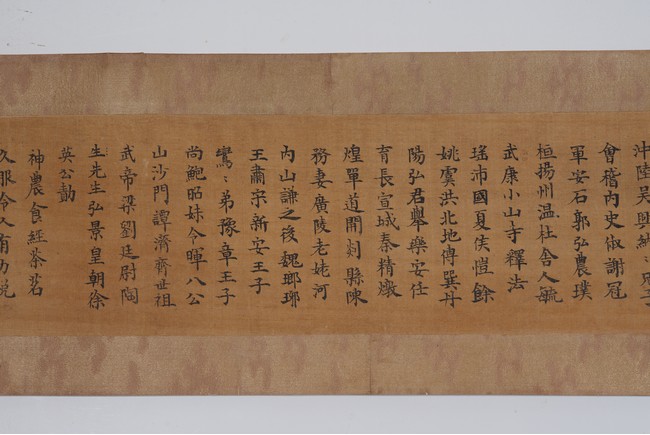 沖陸吴興納〻兄子
會稽内史俶謝冠
軍安石郭弘農璞
桓揚州温杜舍人毓
武康小山寺釋法
瑶沛國夏侯愷餘
姚虞洪北地傅巽丹
陽弘君舉樂安任
育長宣城秦精燉
煌單道開剡縣陳
務妻廣陵老姥河
内山謙之後魏瑯琊
王肅宋新安王子
鸞〻弟豫章王子
尚鮑昭妹令暉八公
山沙門譚濟齊世祖
武帝梁劉廷尉陶
生先生弘景皇朝徐
英公勣
神農食經茶茗
久服令人有力悦